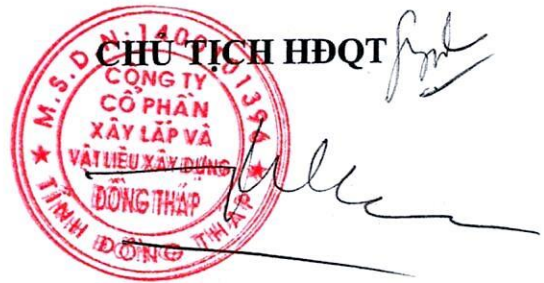 CHỦ TỊCH HĐQT
M.S.D.N: 1400101396
CÔNG TY
CỔ PHẦN
XÂY LẮP VÀ
VẬT LIỆU XÂY DỰNG
ĐỒNG THÁP
TỈNH ĐỒNG THÁP